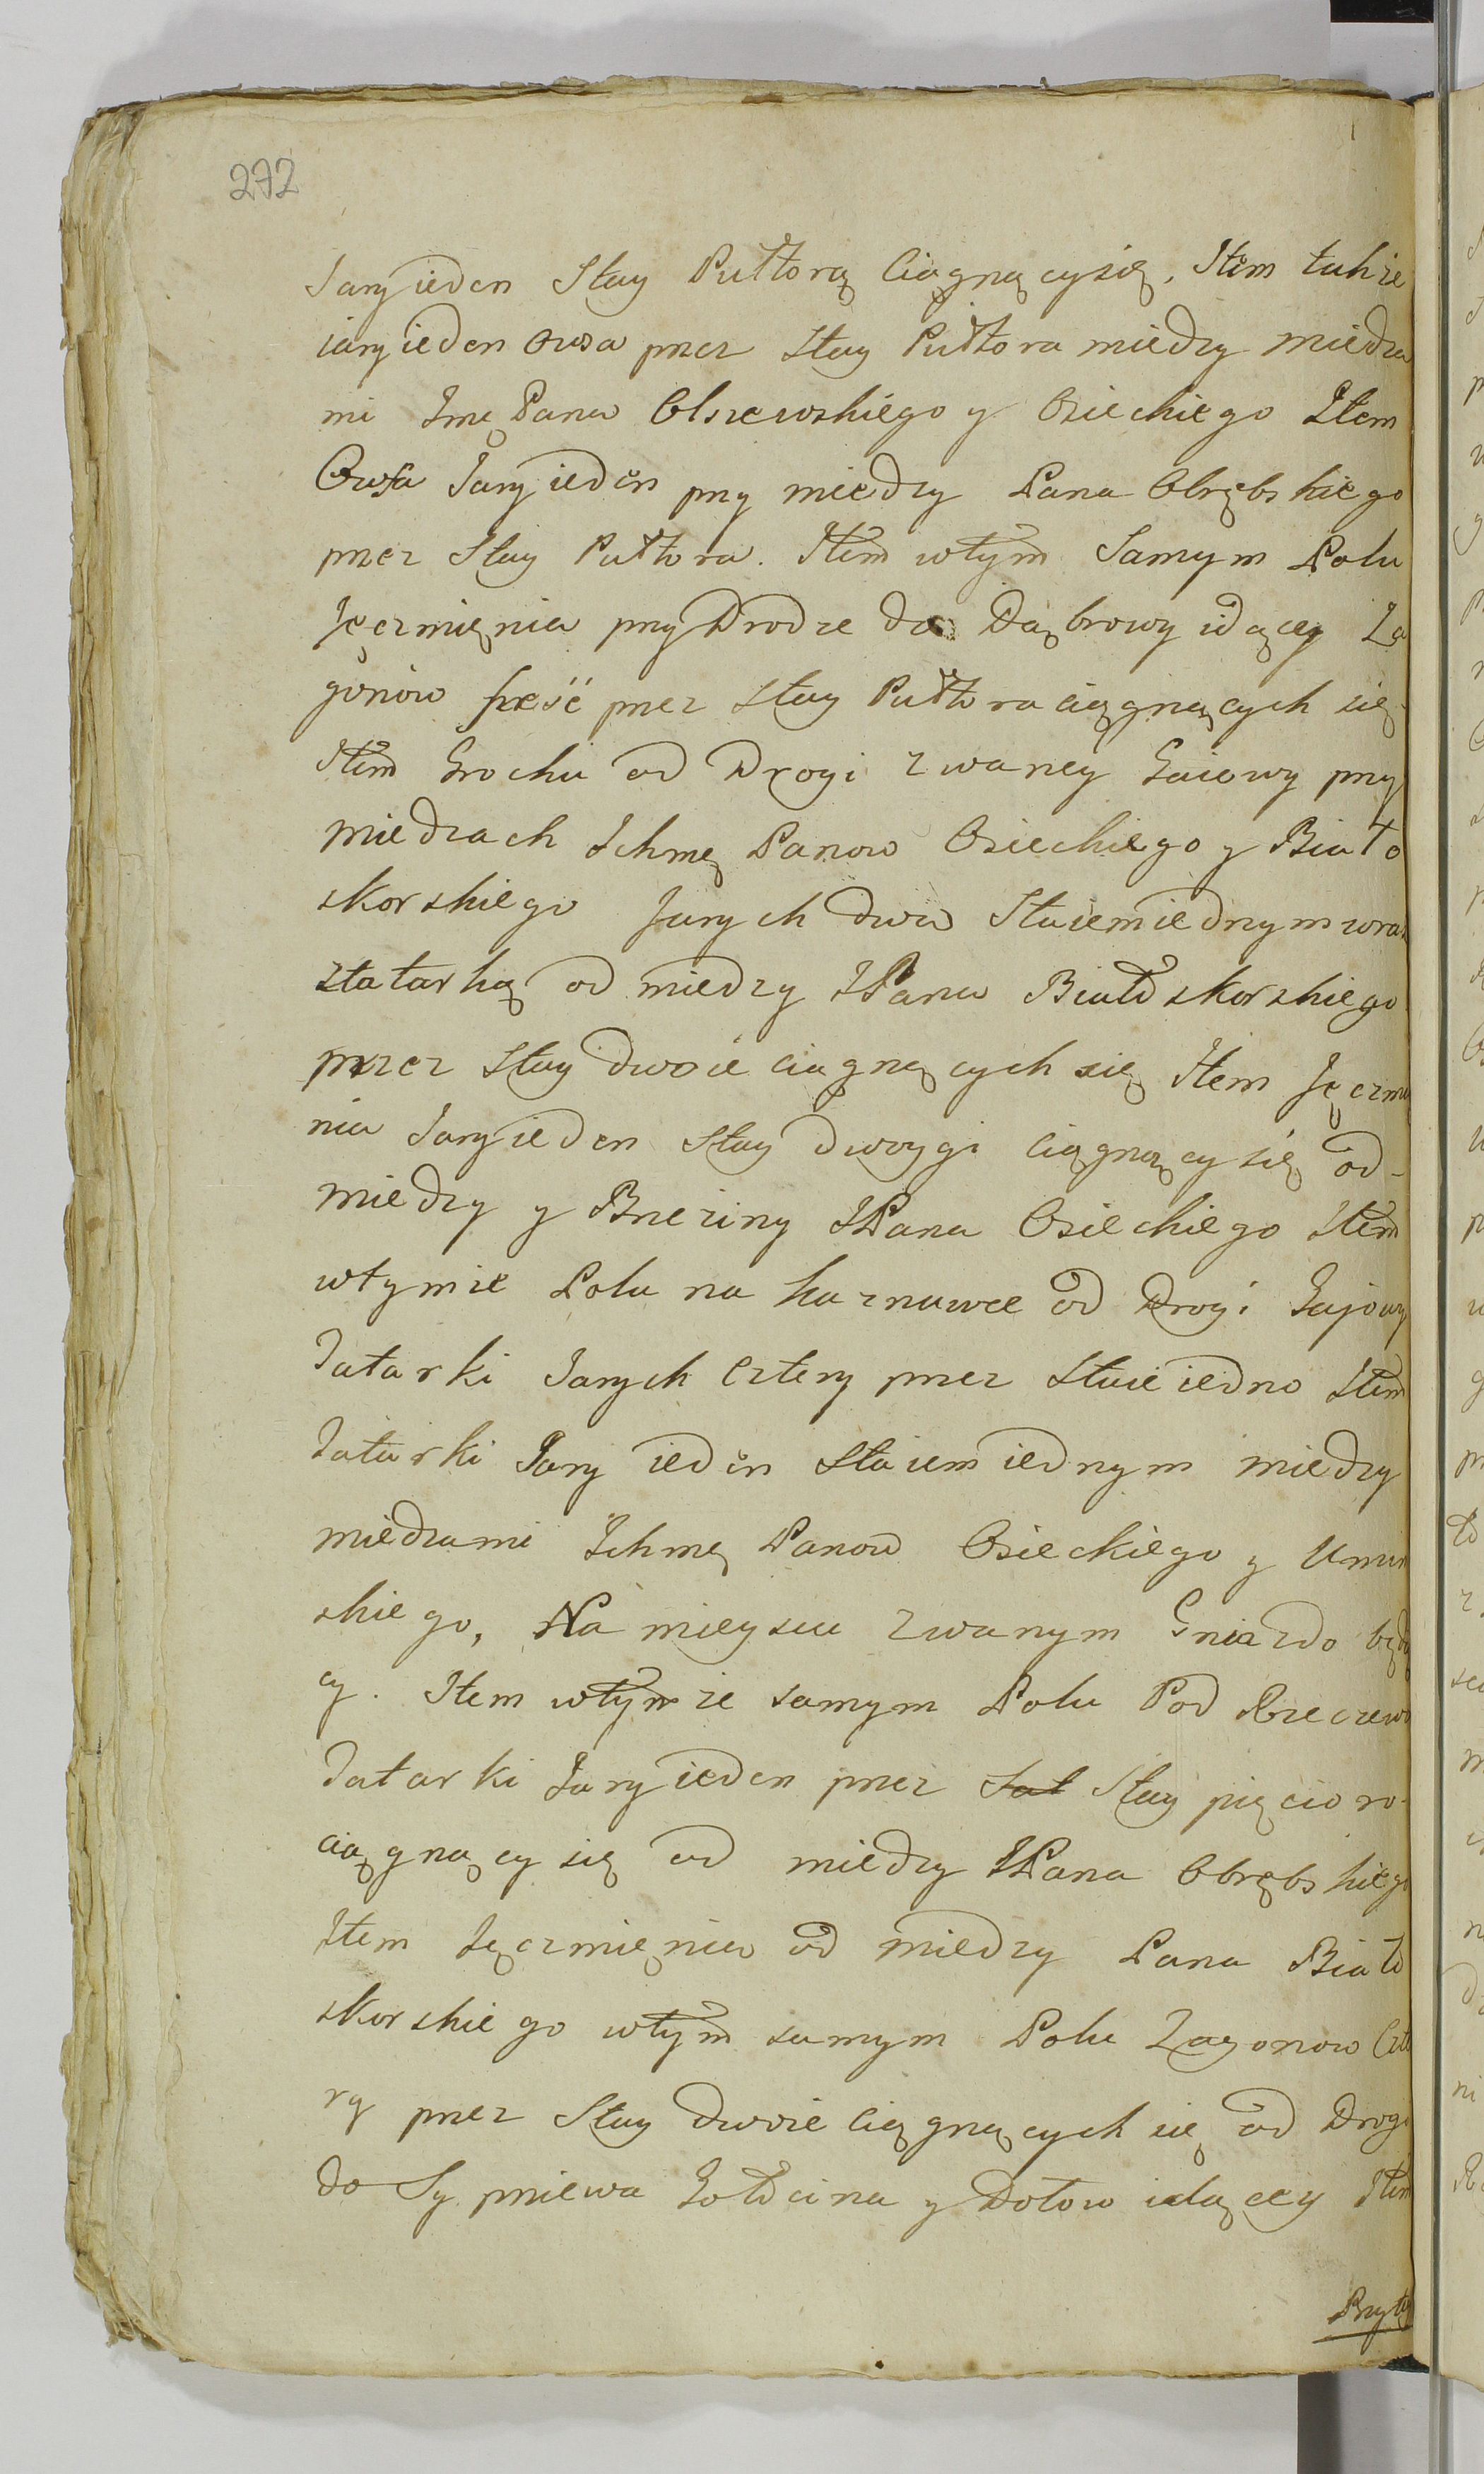 272
Jary ieden Stay Pułtorą Ciągnącysię, Item takze
iary ieden owsa przez Stay Pułtora miedzy miedza
mi Jmę Pana Olszewskiego y Osieckiego Item
Owsa Jary ieden przy miedzy Pana Obrębskiego
przez Stay Pułtora. Item wtym Samym Polu
Jęczmięnia przy Drodze do Dąbrowy idącey Za
gonow sześć przez Stay Pułtora ciągnących się
Item Grochu od Drogi zwaney Gaiowy przy
miedzach Ichmę Panow Osieckiego y Biało
skorskiego Jarych dwa Staiem iednym wraz
ztatarką od miedzy JPana Białoskorskiego
przez Stay dwoie ciągnących się Item Jęczmie
nia Jary ieden Stay dwoygi ciągnący się od
miedzy y Brzeziny JPana Osieckiego Item
wtymze Polu na kaznawce od Drogi Gajowy
Tatarki Jarych Cztery przez Staie iedno Item
Tatarki Jary ieden Staiem iednym miedzy
miedzami Ichmę Panow Osieckiego y
skiego, Na mieyscu zwanym Gniazdo będą
cy. Item wtymze samym Polu Pod
Tatarki Jary ieden przez Sat Stay pięcioro
ciągnący się od miedzy JPana Obrębskiego
Item Jęczmięnia od miedzy Pana Biało
skorskiego wtym samym Polu Zagonow Czte
ry przez Stay dwoie Ciągnących się od Drogi
do Sypniewa Gołocina y Dołow idącey Item